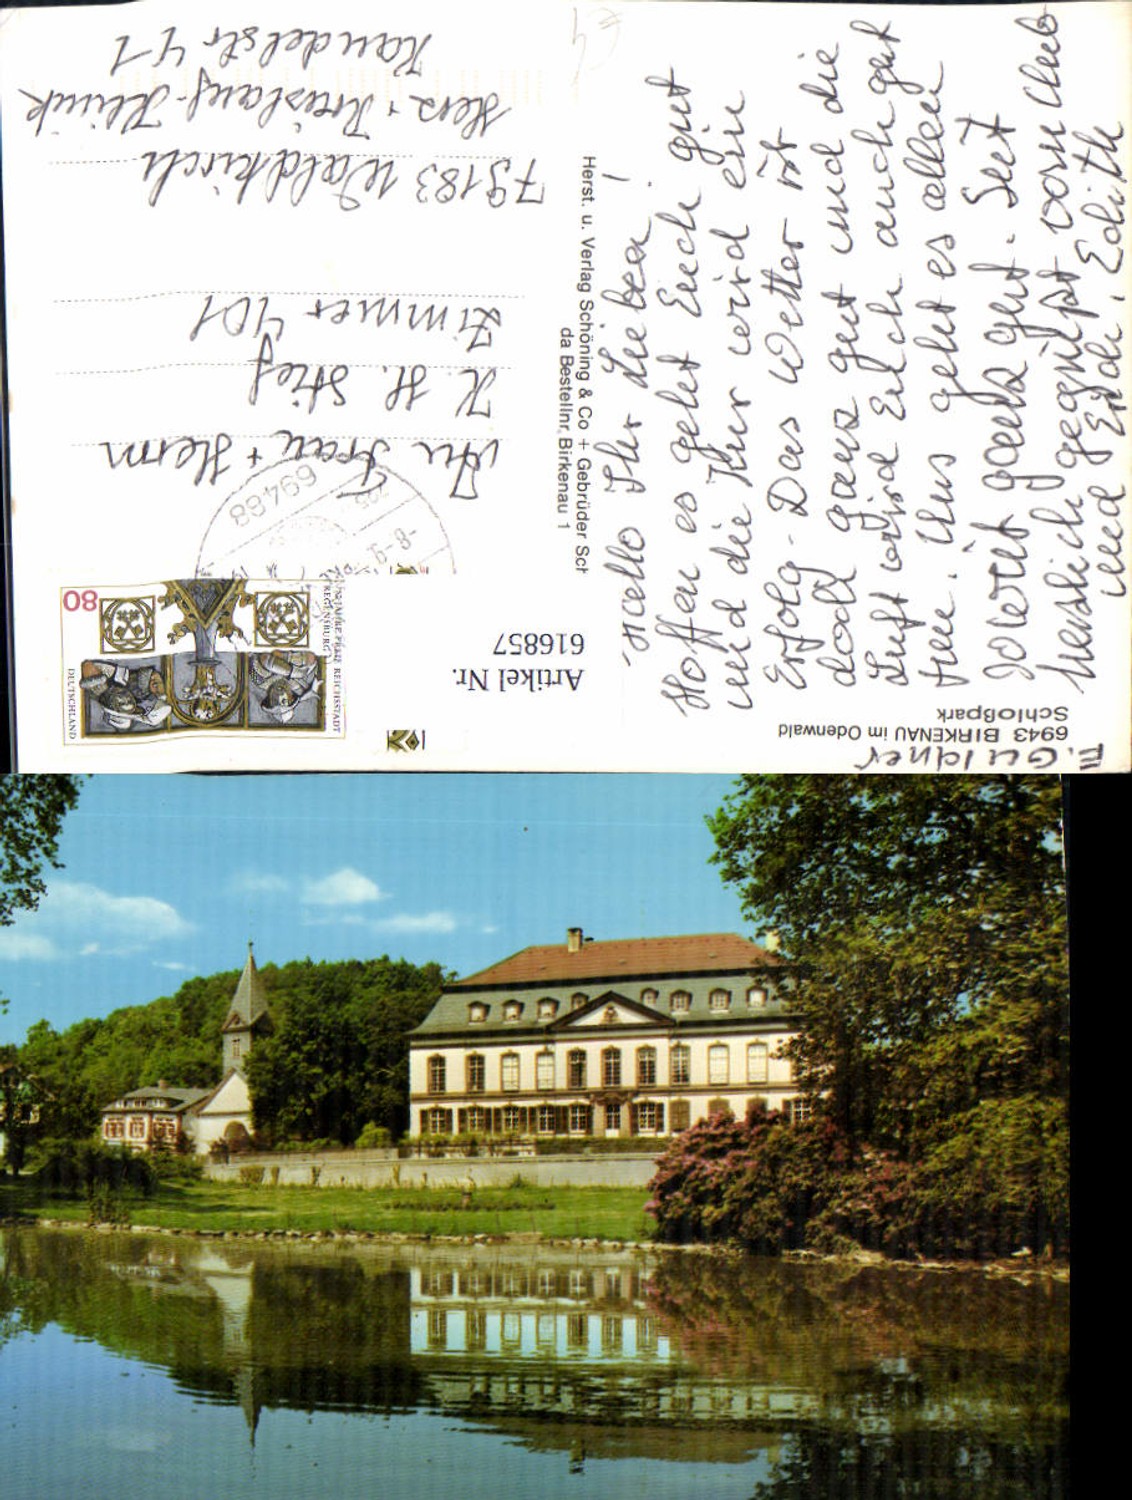 6943 BIRKENAU im Odenwald
Schloßpark
Hallo Ihr Lieben!
Hoffen es gehet Euch gut
und die Kur wird ein
Erfolg. Das Wetter ist
doch ganz gut und die
Luft wird Euch auch gut
tun. Uns geht es allen
soweit ganz gut. Seit
herzlich gegrüßt vom Club
und Erch. Edith
F. Geidner
Herst. u. Verlag Schöning & Co + Gebrüder Sch
da Bestellnr. Birkenau 1
Artikel Nr.
616857
DEUTSCHLAND
80
REICHSSTADT
REGENSBURG
69488
An Frau + Herrn
K. H. Stief
Zimmer 401
79183 Waldkirch
Herz + Kreislauf-Klinik
Kandelstr 41